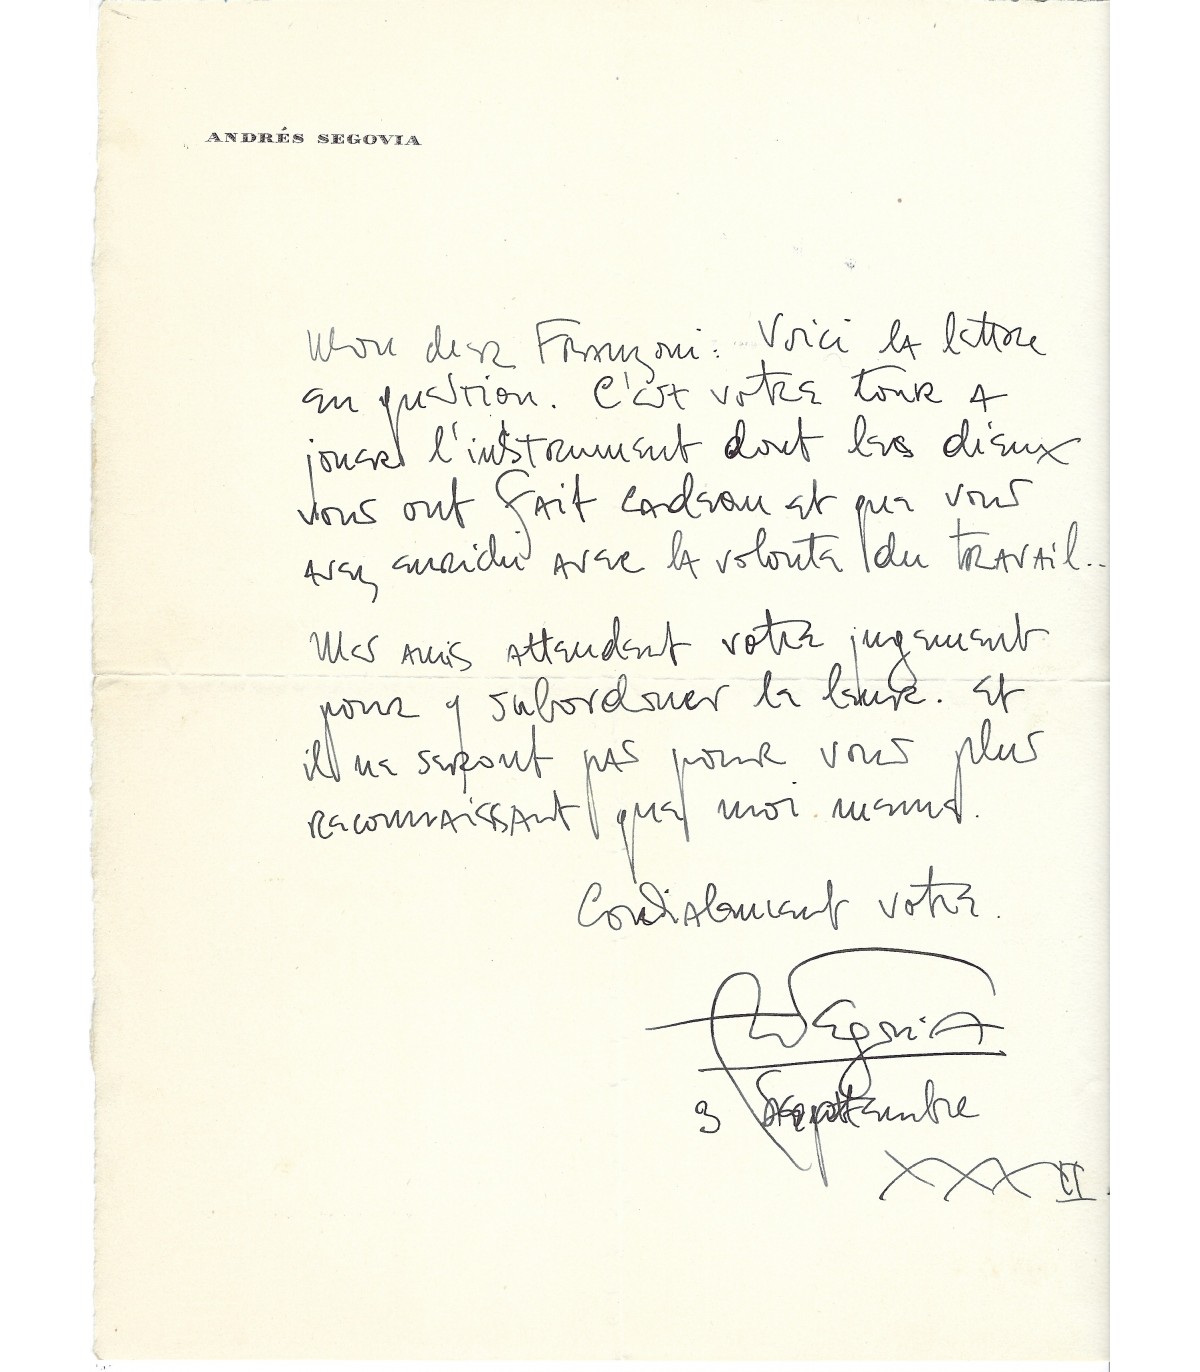 ANDRÉS SEGOVIA
Mon cher Françoni: Voici la lettre
en question. C'est votre tour A
jouer l'instrument dont les dieux
vous ont fait cadeau et que vous
avez enrichi avec la volonte du travail..
Mes amis attendent votre jugement
pour y subordoner le leur. et
il ne seront pas pour vous plus
reconnaissant que moi meme.
Cordialement votre.
A Segovia
3 Septtembre
XXXII.